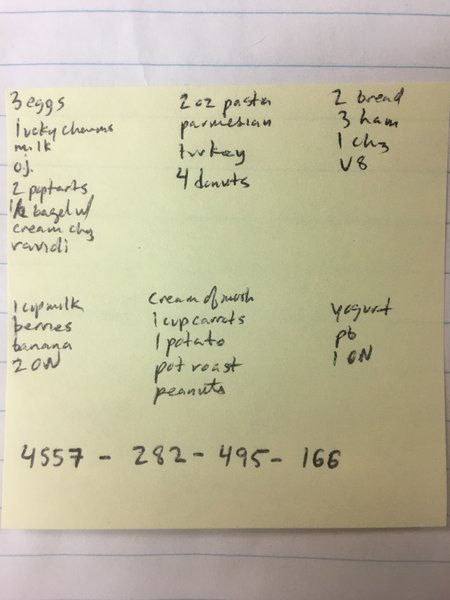 3 eggs
lucky charms
milk
oj.
2 poptarts
1/2 bagel w/
cream chz
ravioli
2 oz pasta
parmesian
turkey
4 donuts
2 bread
3 ham
1 chz
V8
1 cup milk
berries
banana
2 ON
cream of mush
1 cup carrots
1 potato
pot roast
peanuts
yogurt
pb
1 ON
4557 - 282 - 495 - 166